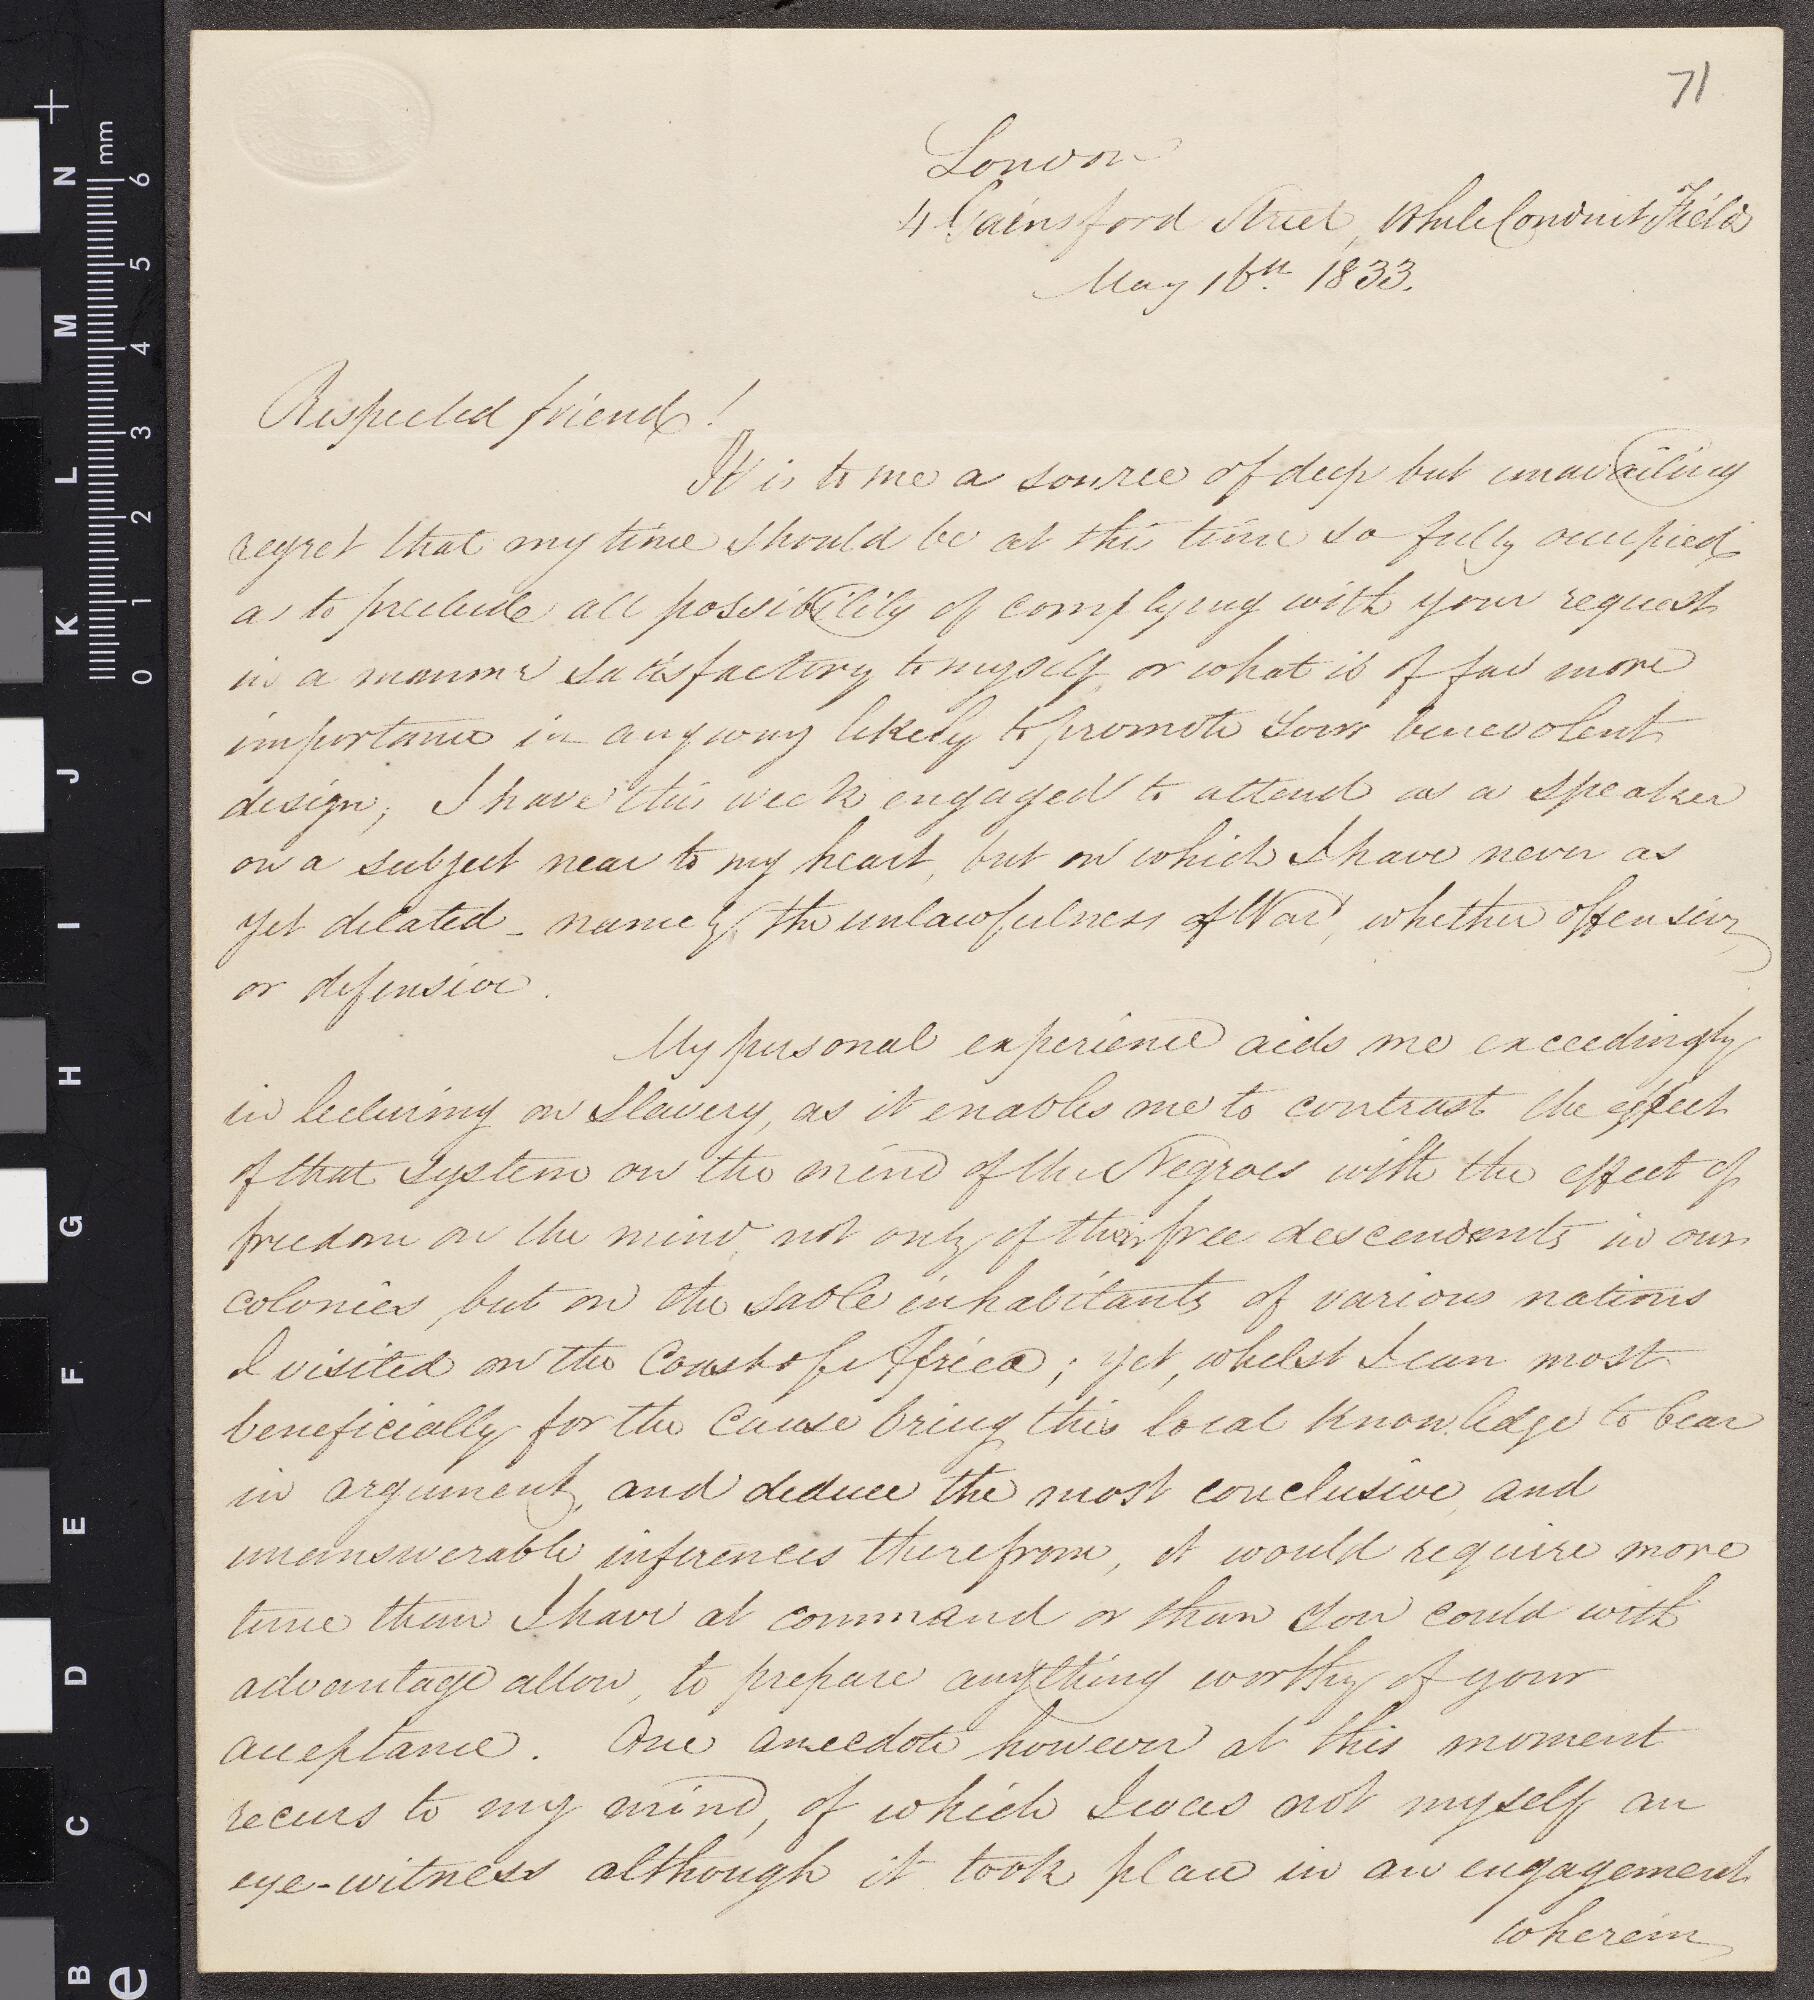 71
London
4 Gainsford Street, White Conduit Fields
May 16th. 1833.
Respected friend!
It is to me a source of deep but unavailing
regret that my time should be at this time so fully occupied
as to preclude all possibility of complying with your request
in a manner satisfactory to myself, or what is of far more
importance in any way likely to promote your benevolent
design; I have this week engaged to attend as a speaker
on a subject near to my heart, but on which I have never as
yet dilated - namely, the unlawfulness of War, whether offensive
or defensive.
My personal experience aids me exceedingly
in lecturing on Slavery, as it enables me to contrast the effect
of that system on the mind of the Negroes with the effect of
freedom on the mind, not only of their free descendants in our
colonies, but on the sable inhabitants of various nations
I visited on the Coast of Africa; yet, whilst I can most
beneficially for the cause bring this local knowledge to bear
in argument, and deduce the most conclusive, and
unanswerable inferences therefrom, it would require more
time than I have at command or than you could with
advantage allow, to prepare anything worthy of your
acceptance. One anecdote however at this moment
recurs to my mind, of which I was not myself an
eye-witness although it took place in an engagement
wherein
mm
6
5
4
3
2
1
0
N
M
L
K
J
I
H
G
F
E
D
C
B
e